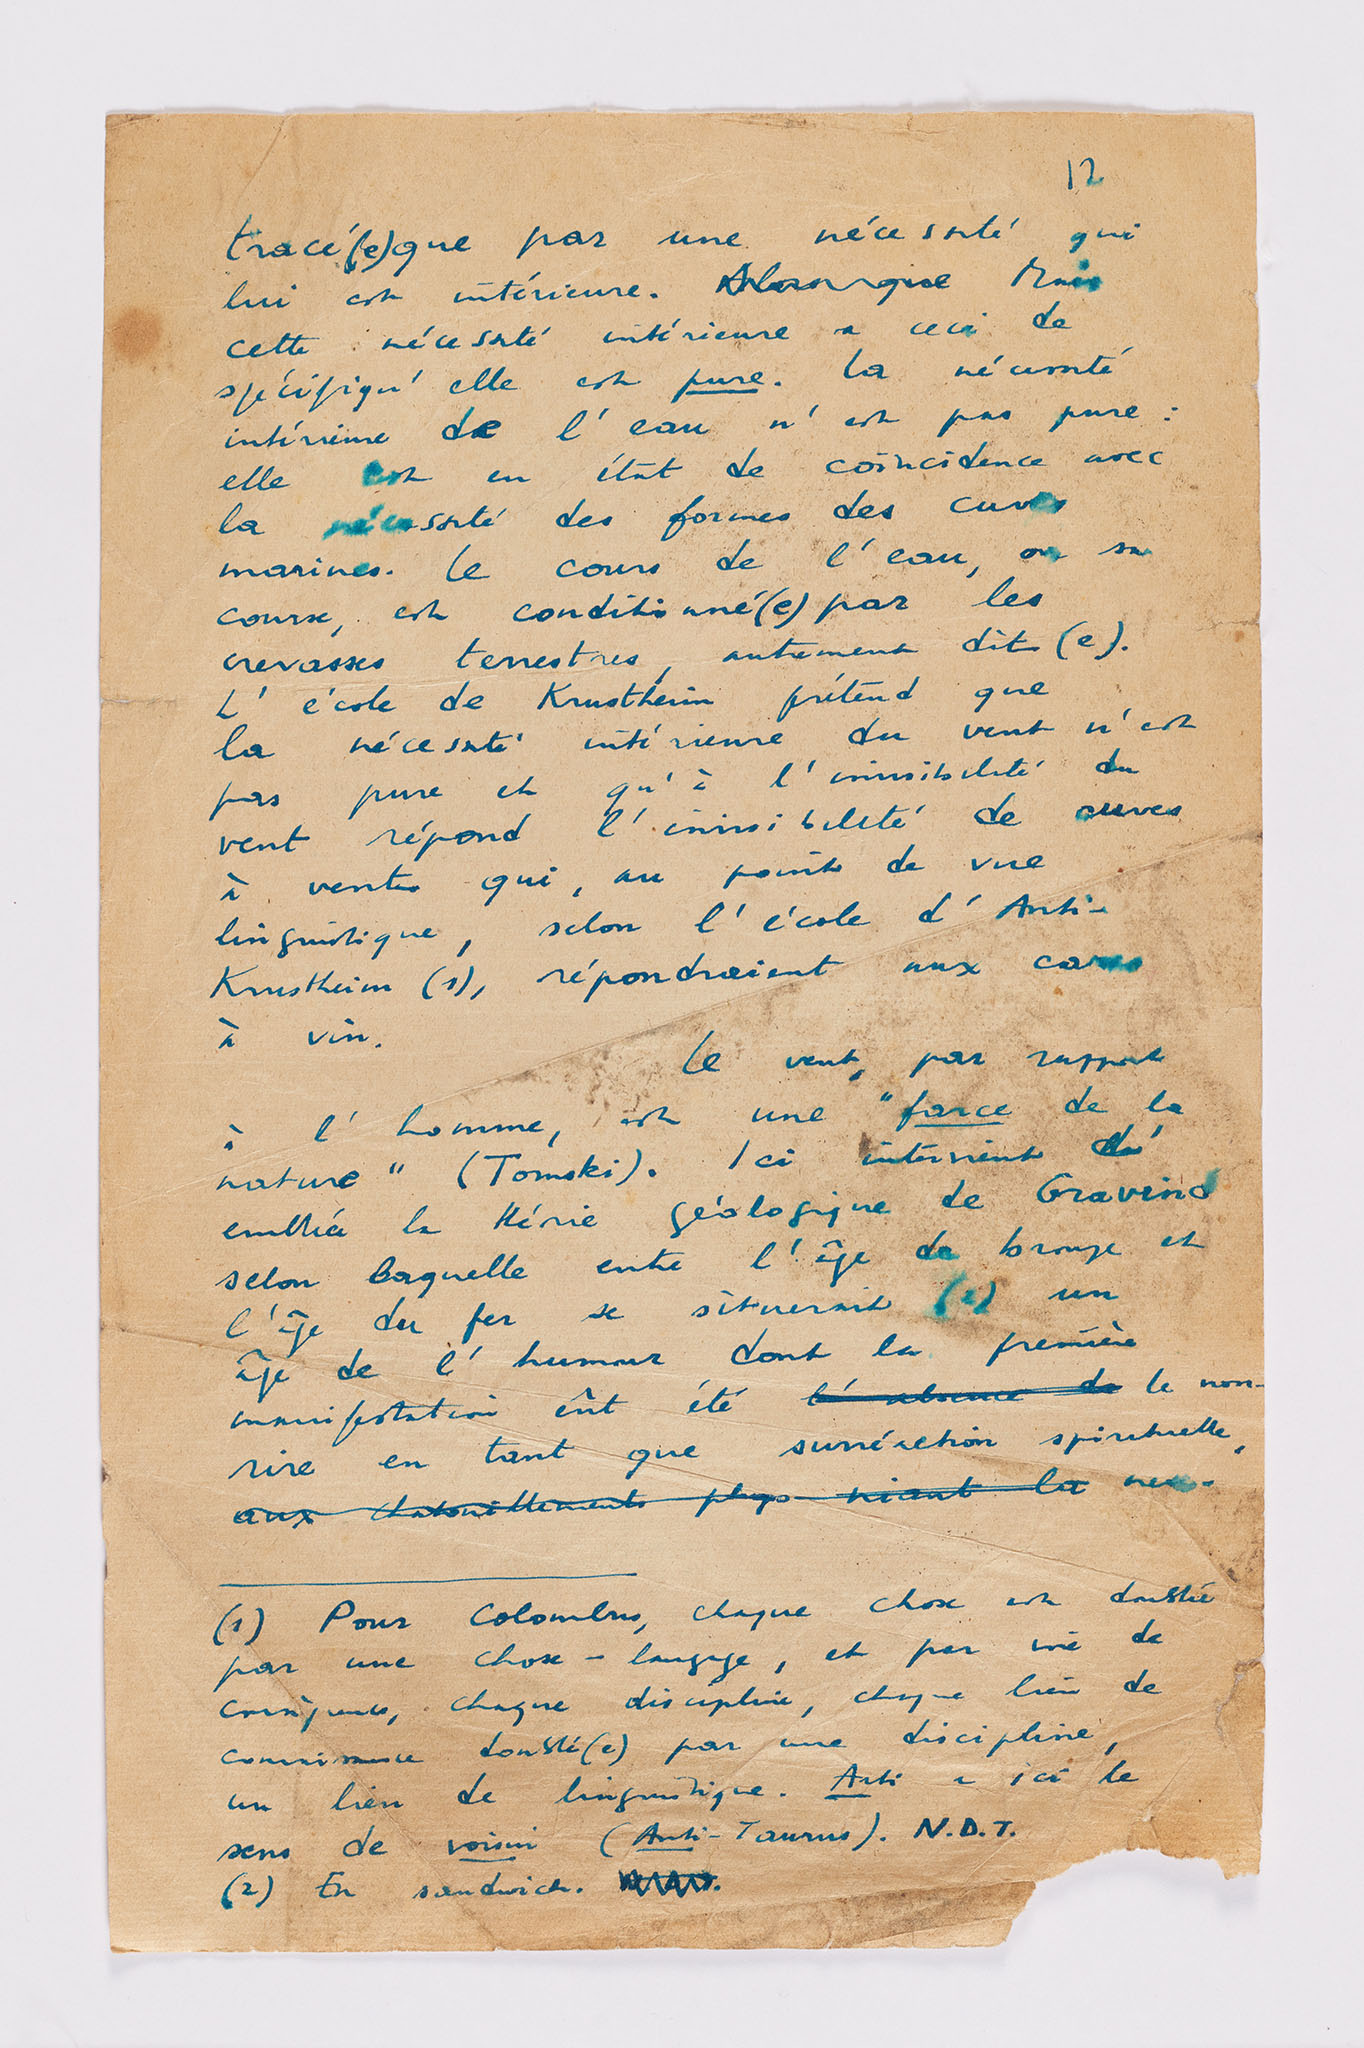 12
tracé(e) que par une nécessité qui
lui est intérieure. Alors que Mais
cette nécessité intérieure a ceci de
spécifiqu'elle est pure. La nécessité
intérieure de l'eau n'est pas pure :
elle est en état de coïncidence avec
la nécessité des formes des cuves
marines. Le cours de l'eau, ou sa
course, est conditionné(e) par les
crevasses terrestres, autrement dit(e).
L'école de Krustheim prétend que
la nécessité intérieure du vent n'est
pas pure et qu'à l'invisibilité du
vent répond l'invisibilité de cuves
à vents qui, au point de vue
linguistique, selon l'école d'Anti-
Krustheim (1), répondraient aux caves
à vin.
Le vent, par rapport
à l'homme, est une "farce de la
nature" (Tomski). Ici intervient d'
emblée la théorie géologique de Gravind
selon laquelle entre l'âge de bronze et
l'âge du fer se situerait (2) un
âge de l'humour dont la première
manifestation eût été l'absence de le non-
rire en tant que surrection spirituelle,
aux chatouillements phys niant la
(1) Pour Colombus, chaque chose est doublée
par une chose-langage, et par voie de
conséquence, chaque discipline, chaque lien de
connaissance doublé(e) par une discipline,
un lien de linguistique. Anti a ici le
sens de voisin (Anti-Taurus). N.D.T.
(2) En sandwich.